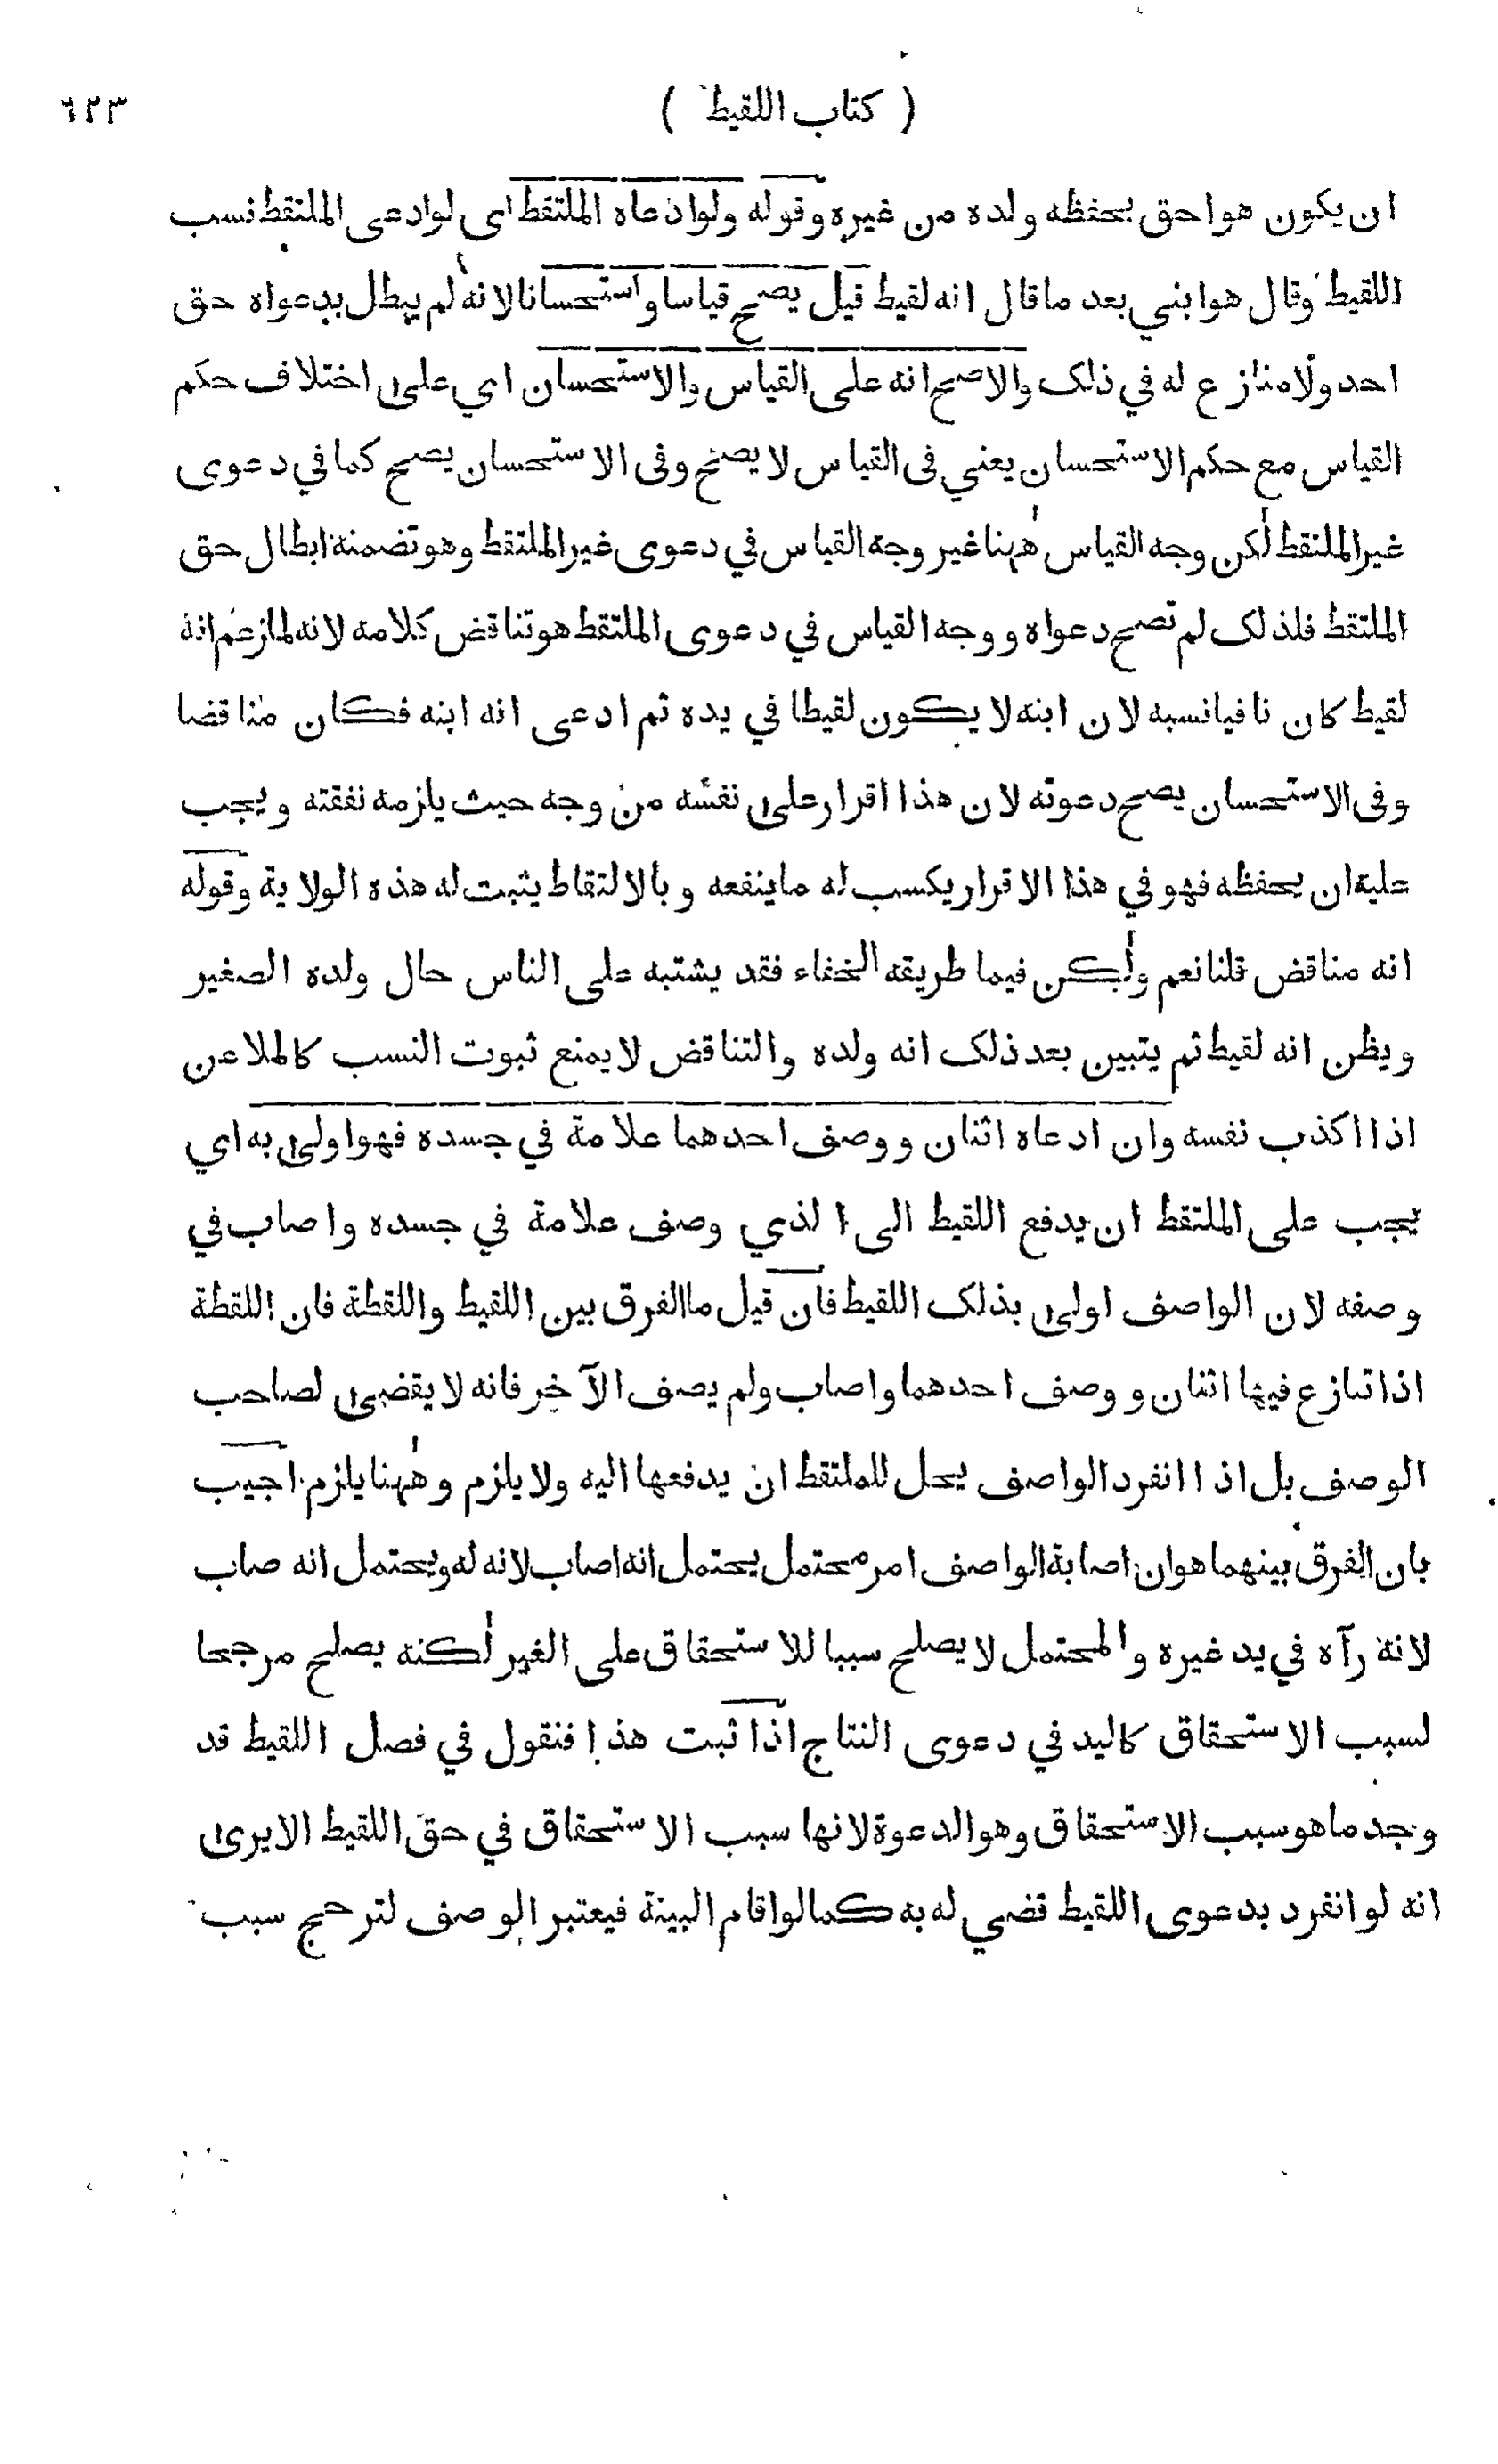 ( كتاب اللقيط )
٦٢٣
ان يكون هو احق بحفظه ولده من غيره وقوله ولو ادعاه الملتقط اى لو ادعى الملتقط نسب
اللقيط وقال هو ابني بعد ما قال انه لقيط قيل يصح قياسا واستحسانا لانه لم يبطل بدعواه حق
احد ولا منازع له في ذلك والاصح انه على القياس والاستحسان اي على اختلاف حكم
القياس مع حكم الاستحسان يعني فى القياس لا يصح وفى الاستحسان يصح كما في دعوى
غير الملتقط لكن وجه القياس ههنا غير وجه القياس في دعوى غير الملتقط وهو تضمنه ابطال حق
الملتقط فلذلك لم تصح دعواه ووجه القياس في دعوى الملتقط هو تناقض كلامه لانه لما زعم انه
لقيط كان نافيا نسبه لان ابنه لا يكون لقيطا في يده ثم ادعى انه ابنه فكان مناقضا
وفى الاستحسان يصح دعوته لان هذا اقرار على نفسه من وجه حيث يلزمه نفقته ويجب
عليه ان يحفظه فهو في هذا الاقرار يكسب له ما ينفعه وبالالتقاط يثبت له هذه الولاية وقوله
انه مناقض قلنا نعم ولكن فيما طريقه الخفاء فقد يشتبه على الناس حال ولده الصغير
ويظن انه لقيط ثم يتبين بعد ذلك انه ولده والتناقض لا يمنع ثبوت النسب كالملاعن
اذا اكذب نفسه وان ادعاه اثنان ووصف احدهما علامة في جسده فهو اولى به اي
يجب على الملتقط ان يدفع اللقيط الى الذي وصف علامة في جسده واصاب في
وصفه لان الواصف اولى بذلك اللقيط فان قيل ما الفرق بين اللقيط واللقطة فان اللقطة
اذا تنازع فيها اثنان ووصف احدهما واصاب ولم يصف الآخر فانه لا يقضى لصاحب
الوصف بل اذا انفرد الواصف يحل للملتقط ان يدفعها اليه ولا يلزم وههنا يلزم اجيب
بان الفرق بينهما هو ان اصابة الواصف امر محتمل يحتمل انه اصاب لانه له ويحتمل انه صاب
لانه رآه في يد غيره والمحتمل لا يصلح سببا للاستحقاق على الغير لكنه يصلح مرجحا
لسبب الاستحقاق كاليد في دعوى النتاج اذا ثبت هذا فنقول في فصل اللقيط قد
وجد ما هو سبب الاستحقاق وهو الدعوة لانها سبب الاستحقاق في حق اللقيط الا يرى
انه لو انفرد بدعوى اللقيط قضي له به كما لو اقام البينة فيعتبر الوصف لترجح سبب